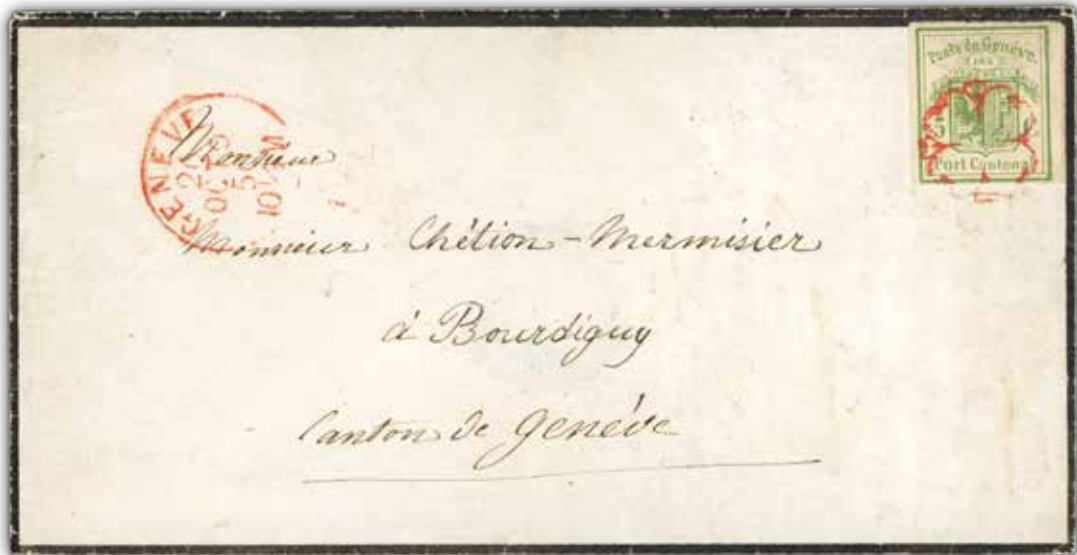 Poste de Genève
Port Cantonal
5
GENEVE
Monsieur
Monsieur Chétion-Mermisier
à Bourdiguy
Canton de Genève